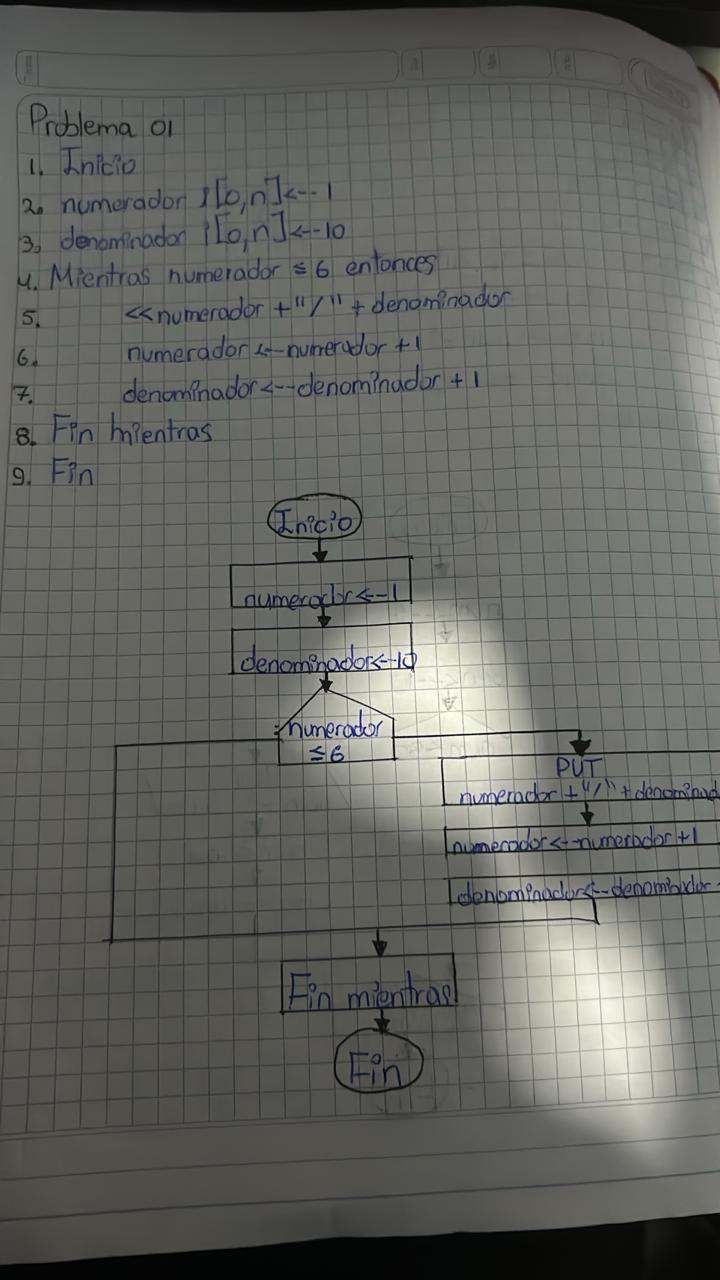 Problema 01
1. Inicio
2. numerador ¦[0,n]<--1
3. denominador ¦[0,n]<--10
4. Mientras numerador ≤ 6 entonces
5. <<numerador +"/"+ denominador
6. numerador <--numerador +1
7. denominador<--denominador + 1
8. Fin mientras
9. Fin
Inicio
numerador<--1
denominador<--10
numerador
≤6
PUT
numerador +"/"+denominad
numerador<--numerador +1
denominador<--denominador
Fin mientras
Fin